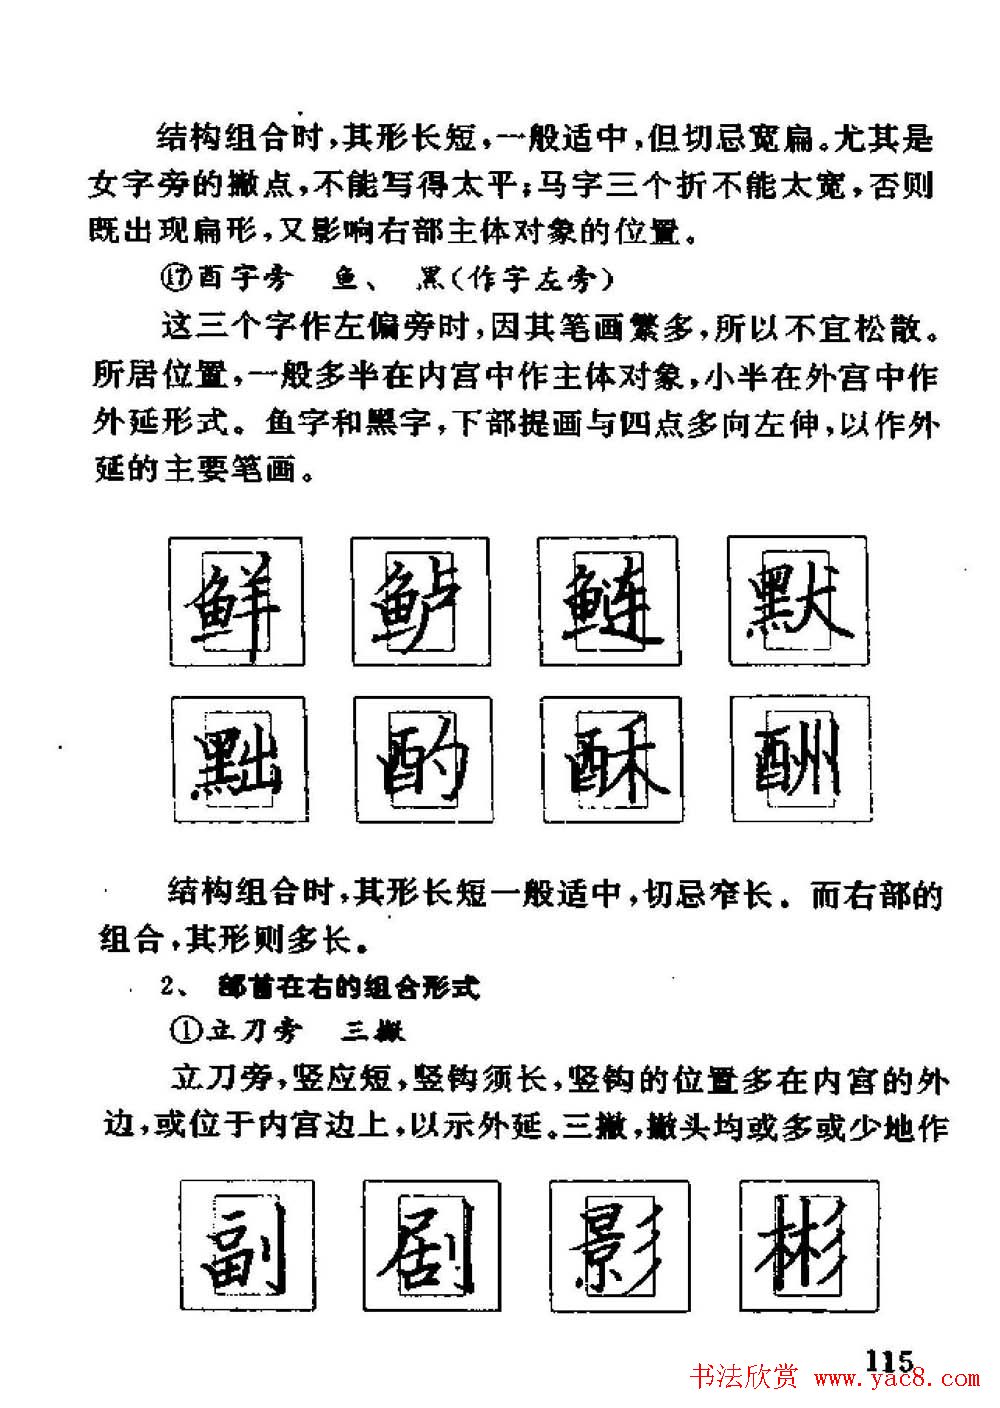 结构组合时，其形长短，一般适中，但切忌宽扁。尤其是
女字旁的撇点，不能写得太平；马字三个折不能太宽，否则
既出现扁形，又影响右部主体对象的位置。
⑰酉字旁 鱼、 黑（作字左旁）
这三个字作左偏旁时，因其笔画繁多，所以不宜松散。
所居位置，一般多半在内宫中作主体对象，小半在外宫中作
外延形式。鱼字和黑字，下部提画与四点多向左伸，以作外
延的主要笔画。
鲜 鲈 鲢 默
黜 酌 酥 酬
结构组合时，其形长短一般适中，切忌窄长。而右部的
组合，其形则多长。
2、 部首在右的组合形式
①立刀旁 三撇
立刀旁，竖应短，竖钩须长，竖钩的位置多在内宫的外
边，或位于内宫边上，以示外延。三撇，撇头均或多或少地作
副 剧 影 彬
115
书法欣赏 www.yac8.com